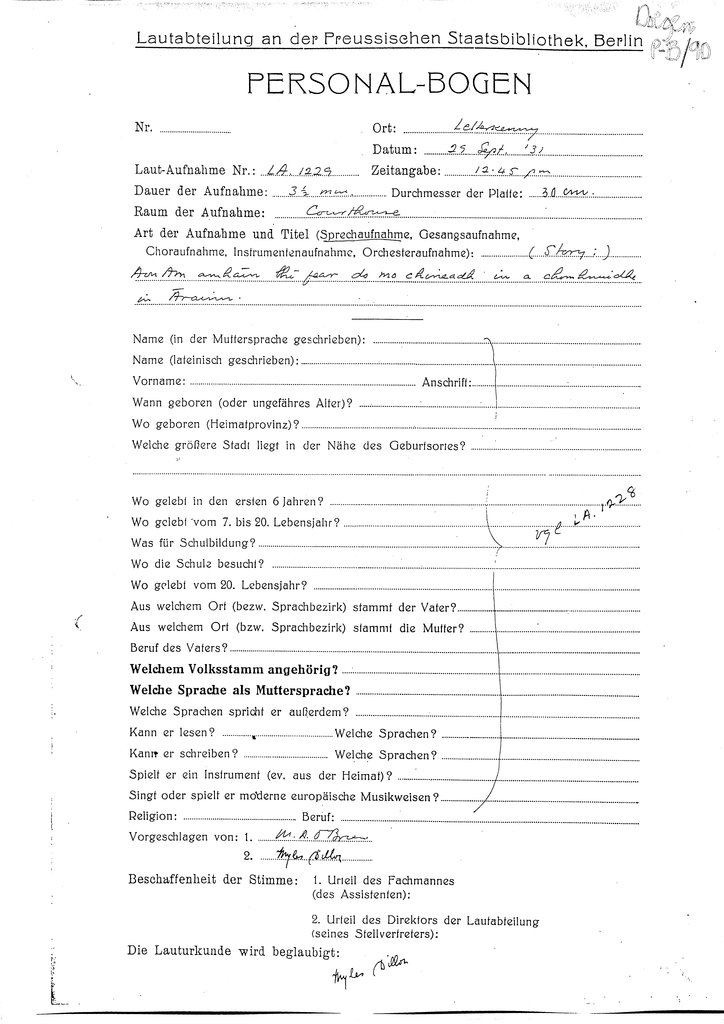 Doegen
P-B/90
Lautabteilung an der Preussischen Staatsbibliothek, Berlin
PERSONAL-BOGEN
Nr.
Ort: Letterkenny
Datum: 29 Sept. '31
Laut-Aufnahme Nr.: LA. 1229 Zeitangabe: 12.45 pm
Dauer der Aufnahme: 3½ min. Durchmesser der Platte: 30 cm.
Raum der Aufnahme: Courthouse
Art der Aufnahme und Titel (Sprechaufnahme, Gesangsaufnahme,
Choraufnahme, Instrumentenaufnahme, Orchesteraufnahme): (Story:)
Aon Am amháin thí fear do mo chineadh in a chomhnuidhe
in Árainn.
Name (in der Muttersprache geschrieben):
Name (lateinisch geschrieben):
Vorname: Anschrift:
Wann geboren (oder ungefähres Alter)?
Wo geboren (Heimatprovinz)?
Welche größere Stadt liegt in der Nähe des Geburtsortes?
Wo gelebt in den ersten 6 Jahren?
vgl LA. 1228
Wo gelebt vom 7. bis 20. Lebensjahr?
Was für Schulbildung?
Wo die Schule besucht?
Wo gelebt vom 20. Lebensjahr?
Aus welchem Ort (bezw. Sprachbezirk) stammt der Vater?
Aus welchem Ort (bzw. Sprachbezirk) stammt die Mutter?
Beruf des Vaters?
Welchem Volksstamm angehörig?
Welche Sprache als Muttersprache?
Welche Sprachen spricht er außerdem?
Kann er lesen? Welche Sprachen?
Kann er schreiben? Welche Sprachen?
Spielt er ein Instrument (ev. aus der Heimat)?
Singt oder spielt er moderne europäische Musikweisen?
Religion: Beruf:
Vorgeschlagen von: 1. M. A. O'Brien
2. Myles Dillon
Beschaffenheit der Stimme: 1. Urteil des Fachmannes
(des Assistenten):
2. Urteil des Direktors der Lautabteilung
(seines Stellvertreters):
Die Lauturkunde wird beglaubigt:
Myles Dillon